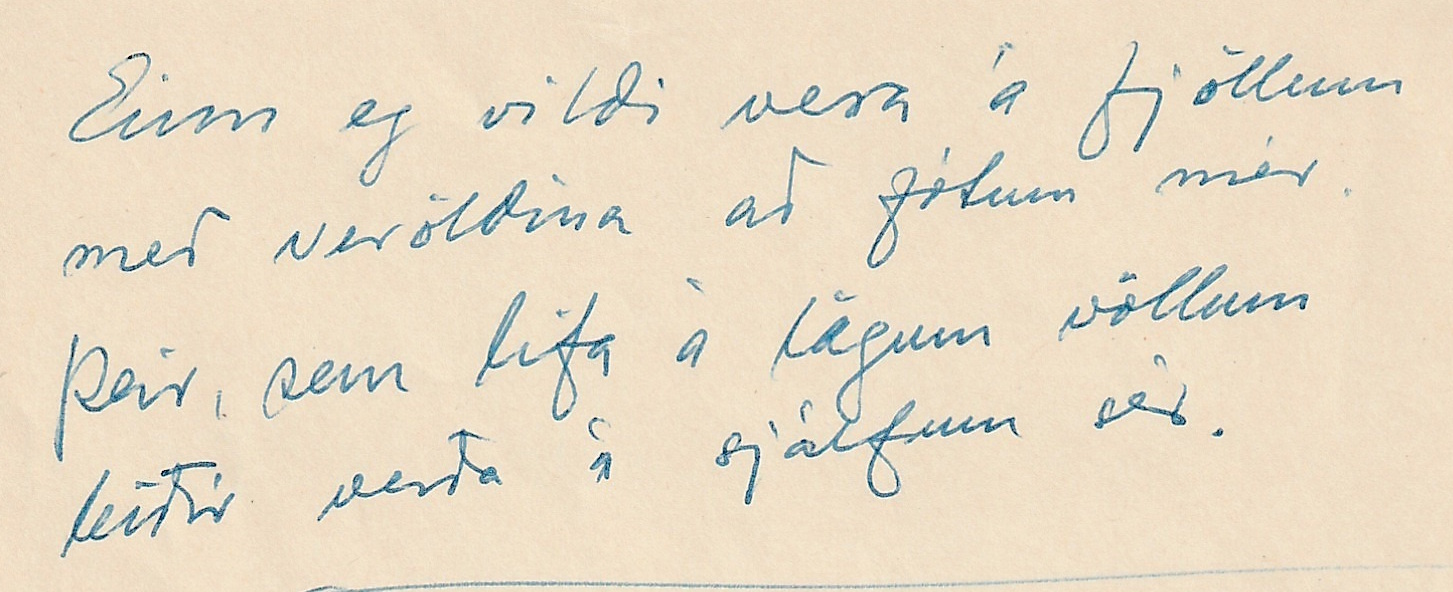 Einn eg vildi vera á fjöllum
með veröldina að fótum mér.
Þeir, sem lifa á lágum völlum
leiðir verða á sjálfum sér.